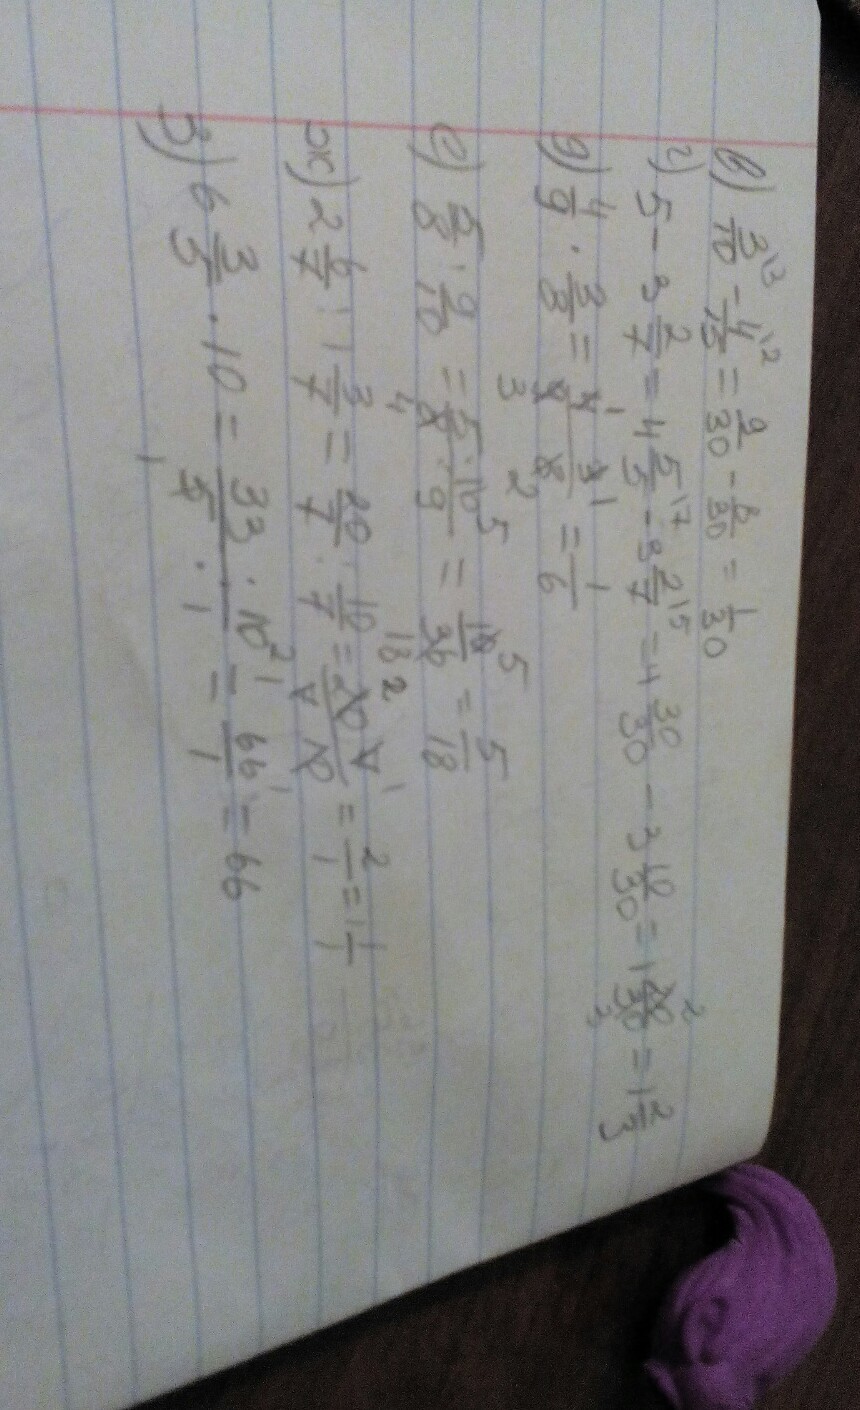 в) 3/10 - 4/15 = 9/30 - 8/30 = 1/30
г) 5 - 3 2/7 = 4 5/5 - 3 2/7 = 4 30/30 - 3 10/30 = 1 20/30 = 1 2/3
д) 4/9 · 3/8 = 4 3/9 8 = 1/6
е) 5/8 : 9/10 = 5 · 10/8 · 9 = 10/36 = 5/18
ж) 2 6/7 : 1 3/7 = 20/7 : 10/7 = 20 7/7 10 = 2/1 = 1 1/1
з) 6 3/5 · 10 = 33 · 10/5 · 1 = 66/1 = 66